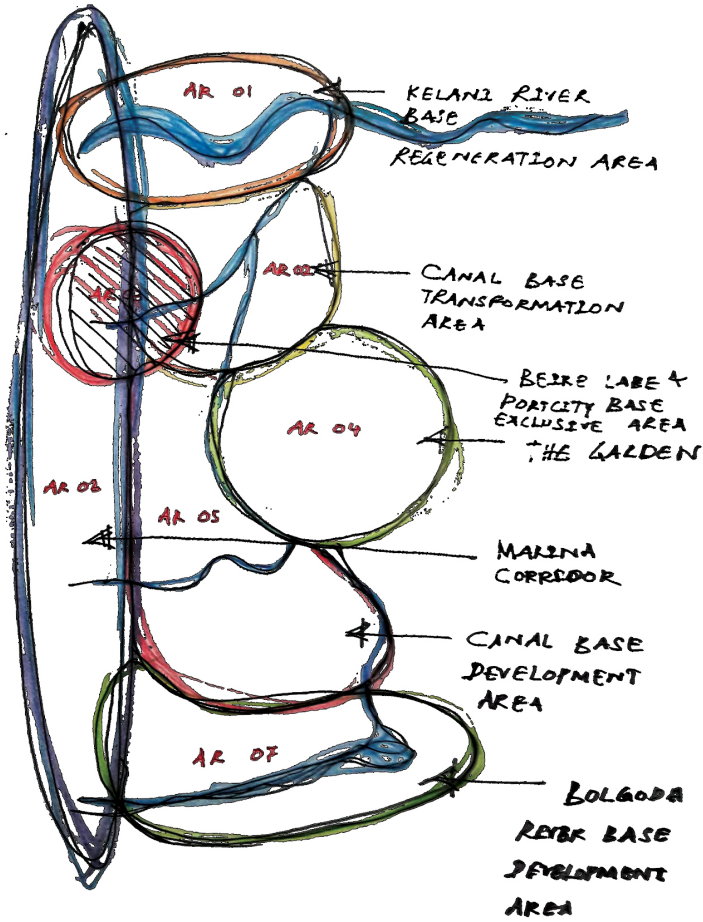 AR 01
KELANI RIVER
BASE
REGENERATION AREA
AR 02
CANAL BASE
TRANSFORMATION
AREA
AR
BEIRE LAKE &
PORTCITY BASE
EXCLUSIVE AREA
AR 04
THE GARDEN
AR 03
AR 05
MARINA
CORRIDOR
CANAL BASE
DEVELOPMENT
AREA
AR 07
BOLGODA
RIVER BASE
DEVELOPMENT
AREA